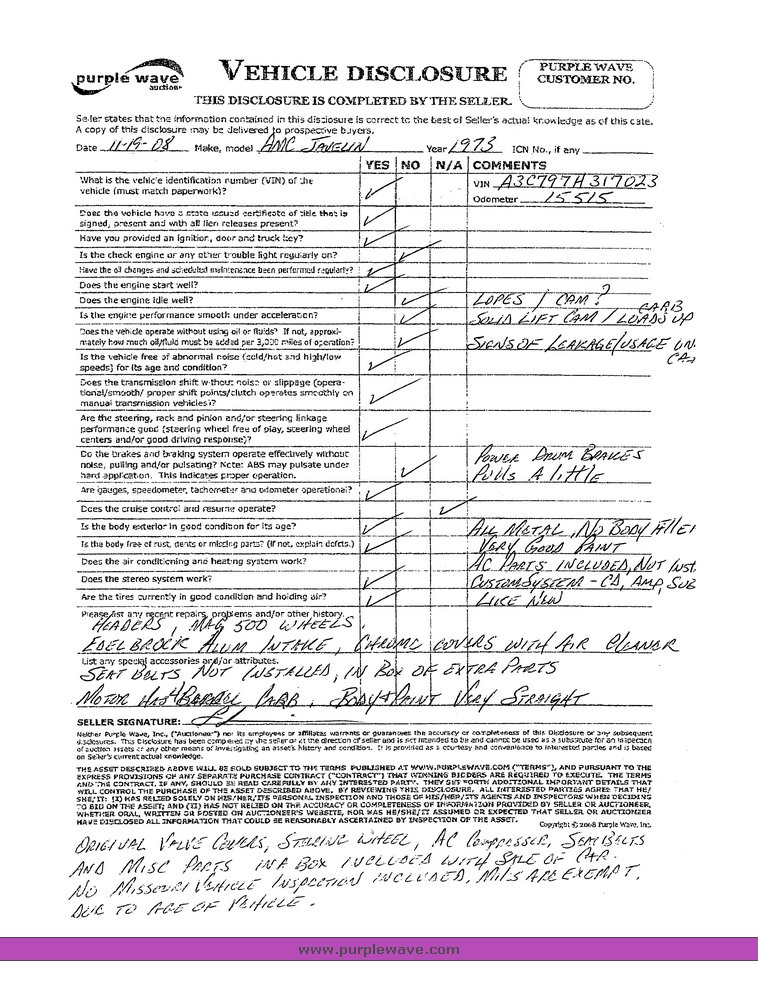 purple wave
auction
VEHICLE DISCLOSURE
PURPLE WAVE
CUSTOMER NO.
THIS DISCLOSURE IS COMPLETED BY THE SELLER.
Seller states that the information contained in this disclosure is correct to the best of Seller's actual knowledge as of this date.
A copy of this disclosure may be delivered to prospective buyers.
Date 11-19-08 Make, model AMC JAVELIN Year 1973 ICN No., if any
YES NO N/A COMMENTS
What is the vehicle identification number (VIN) of the
vehicle (must match paperwork)?
VIN A3C797H317023
Odometer 15515
Does the vehicle have a state issued certificate of title that is
signed, present and with all lien releases present?
Have you provided an ignition, door and truck key?
Is the check engine or any other trouble light regularly on?
Have the oil changes and scheduled maintenance been performed regularly?
Does the engine start well?
Does the engine idle well? LOPES / CAM?
Is the engine performance smooth under acceleration? SOLID LIFT CAM / CARB LOADS UP
Does the vehicle operate without using oil or fluids? If not, approxi-
mately how much oil/fluid must be added per 3,000 miles of operation? SIGNS OF LEAKAGE/USAGE UN
Is the vehicle free of abnormal noise (cold/hot and high/low
speeds) for its age and condition?
Does the transmission shift without noise or slippage (opera-
tional/smooth/ proper shift points/clutch operates smoothly on
manual transmission vehicles)?
Are the steering, rack and pinion and/or steering linkage
performance good (steering wheel free of play, steering wheel
centers and/or good driving response)?
Do the brakes and braking system operate effectively without
noise, pulling and/or pulsating? Note: ABS may pulsate under
hard application. This indicates proper operation.
POWER DRUM BRAKES
PULLS A LITTLE
Are gauges, speedometer, tachometer and odometer operational?
Does the cruise control and resume operate?
Is the body exterior in good condition for its age? ALL METAL, NO BODY FILLE
Is the body free of rust, dents or missing parts? (If not, explain defects.) VERY GOOD PAINT
Does the air conditioning and heating system work? AC PARTS INCLUDED, NOT INST.
Does the stereo system work? CUSTOM SYSTEM - CD, AMP, SUB
Are the tires currently in good condition and holding air? LIKE NEW
Please list any recent repairs, problems and/or other history.
HEADERS, MAG 500 WHEELS,
EDELBROCK ALUM INTAKE, CHROME COVERS WITH AIR CLEANER
List any special accessories and/or attributes.
SEAT BELTS NOT INSTALLED, IN BOX OF EXTRA PARTS
MOTOR HAS 4 BARREL CARB, BODY & PAINT VERY STRAIGHT
SELLER SIGNATURE:
Neither Purple Wave, Inc., ("Auctioneer") nor its employees or affiliates warrants or guarantees the accuracy or completeness of this Disclosure or any subsequent
disclosures. This Disclosure has been completed by the seller or at the direction of seller and is not intended to be and cannot be used as a substitute for an inspection
of auction assets or any other means of investigating an asset's history and condition. It is provided as a courtesy and convenience to interested parties and is based
on Seller's current actual knowledge.
THE ASSET DESCRIBED ABOVE WILL BE SOLD SUBJECT TO THE TERMS PUBLISHED AT WWW.PURPLEWAVE.COM ("TERMS"), AND PURSUANT TO THE
EXPRESS PROVISIONS OF ANY SEPARATE PURCHASE CONTRACT ("CONTRACT") THAT WINNING BIDDERS ARE REQUIRED TO EXECUTE. THE TERMS
AND THE CONTRACT, IF ANY, SHOULD BE READ CAREFULLY BY ANY INTERESTED PARTY. THEY SET FORTH ADDITIONAL IMPORTANT DETAILS THAT
WILL CONTROL THE PURCHASE OF THE ASSET DESCRIBED ABOVE. BY REVIEWING THIS DISCLOSURE, ALL INTERESTED PARTIES AGREE THAT HE/
SHE/IT: (I) HAS RELIED SOLELY ON HIS/HER/ITS PERSONAL INSPECTION AND THOSE OF HIS/HER/ITS AGENTS AND INSPECTORS WHEN DECIDING
TO BID ON THE ASSET; AND (II) HAS NOT RELIED ON THE ACCURACY OR COMPLETENESS OF INFORMATION PROVIDED BY SELLER OR AUCTIONEER,
WHETHER ORAL, WRITTEN OR POSTED ON AUCTIONEER'S WEBSITE, NOR HAS HE/SHE/IT ASSUMED OR EXPECTED THAT SELLER OR AUCTIONEER
HAVE DISCLOSED ALL INFORMATION THAT COULD BE REASONABLY ASCERTAINED BY INSPECTION OF THE ASSET.
Copyright © 2008 Purple Wave, Inc.
ORIGINAL VALVE COVERS, STEERING WHEEL, AC COMPRESSER, SEATBELTS
AND MISC PARTS IN A BOX INCLUDED WITH SALE OF CAR.
NO MISSOURI VEHICLE INSPECTION INCLUDED, MILS ARE EXEMPT.
DUE TO AGE OF VEHICLE.
www.purplewave.com